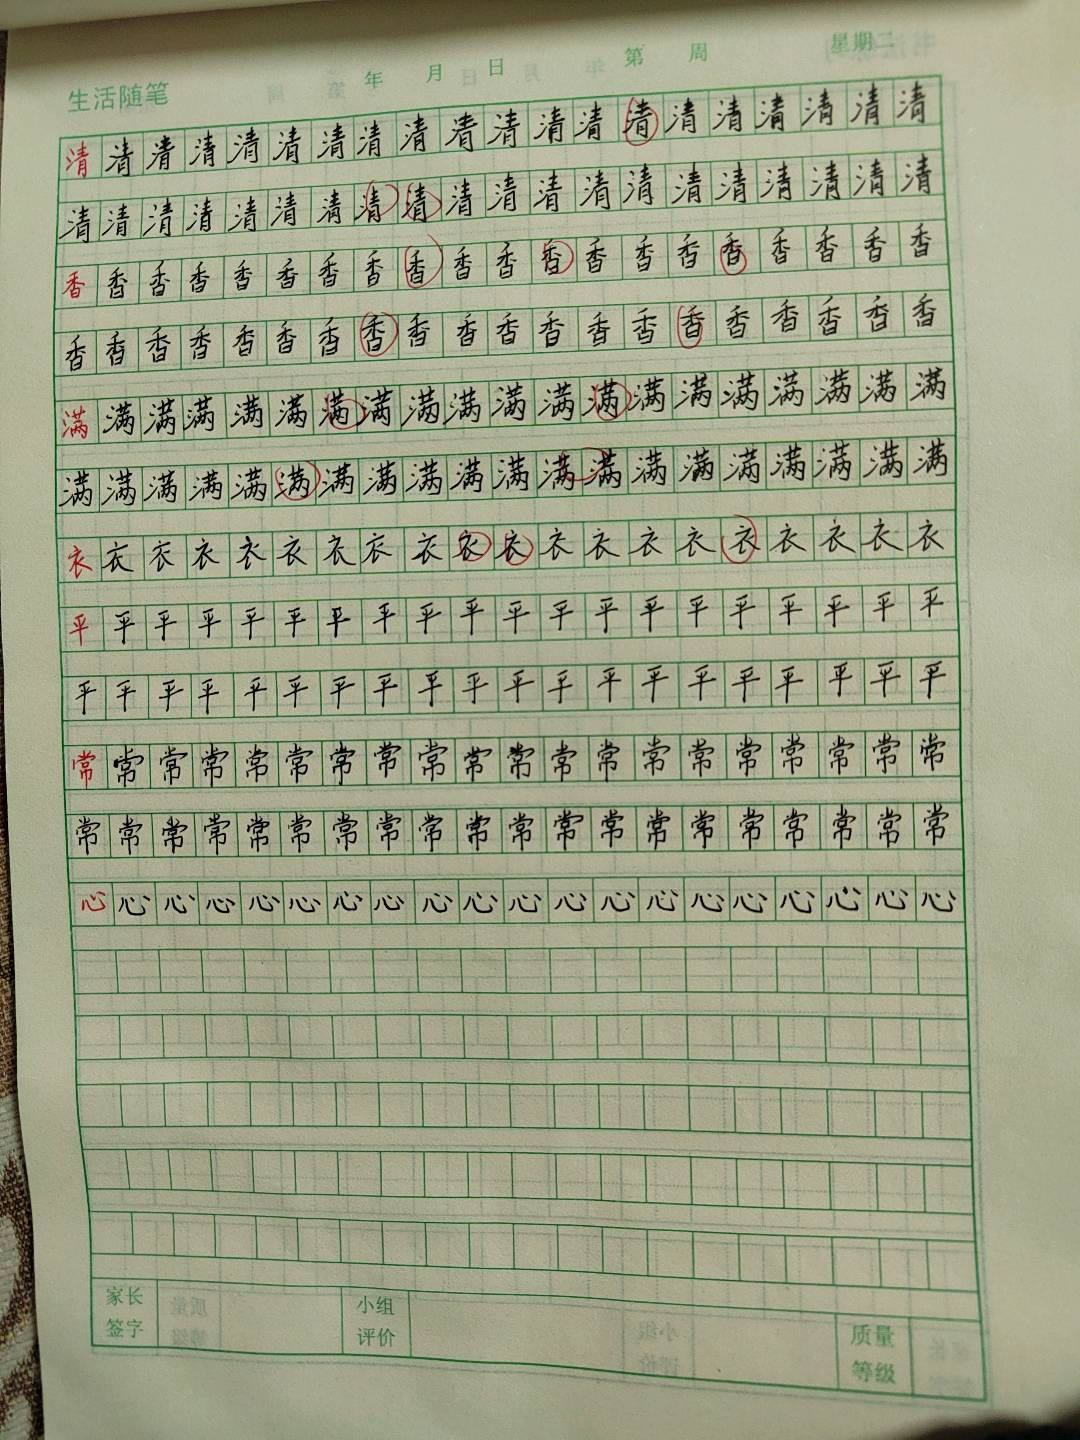 生活随笔 年 月 日 第 周 星期二
清清清清清清清清清清清清清清清清清清清清
清清清清清清清清清清清清清清清清清清清清
香香香香香香香香香香香香香香香香香香香香
香香香香香香香香香香香香香香香香香香香香
满满满满满满满满满满满满满满满满满满满满
满满满满满满满满满满满满满满满满满满满满
衣衣衣衣衣衣衣衣衣衣衣衣衣衣衣衣衣衣衣衣
平平平平平平平平平平平平平平平平平平平平
平平平平平平平平平平平平平平平平平平平平
常常常常常常常常常常常常常常常常常常常常
常常常常常常常常常常常常常常常常常常常常
心心心心心心心心心心心心心心心心心心心心
家长 小组 质量
签字 评价 等级